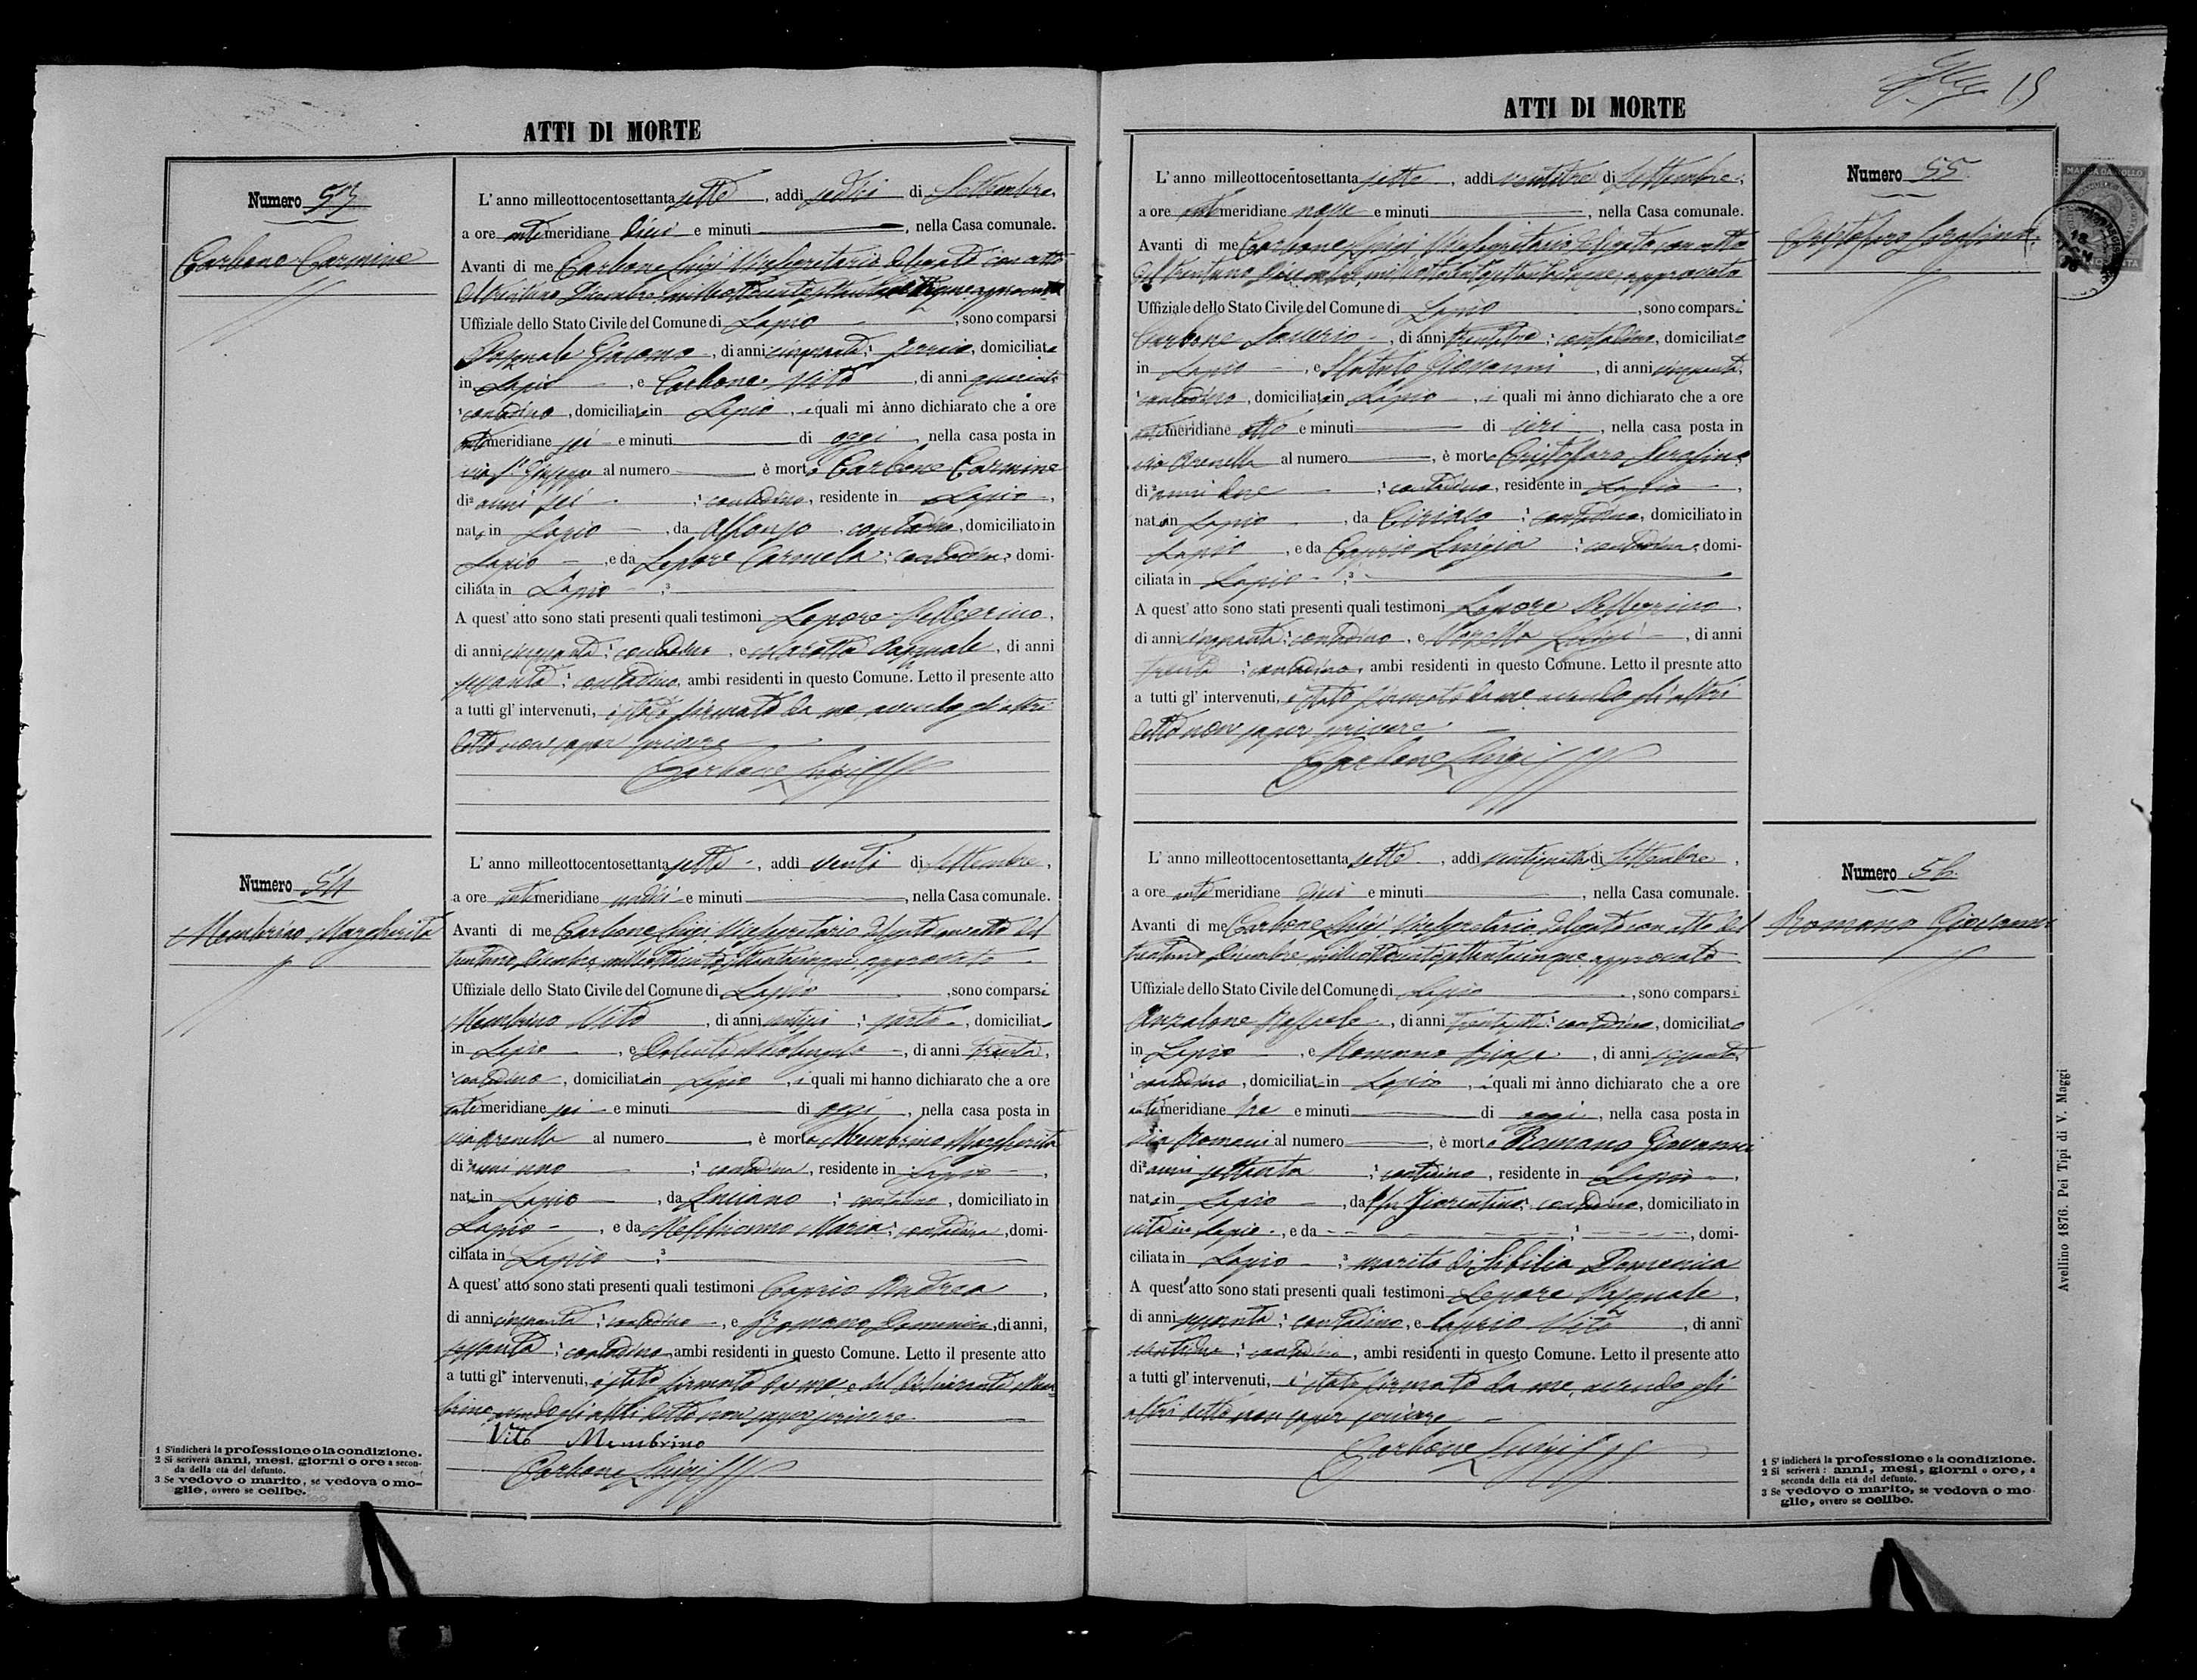 ATTI DI MORTE
Numero 53
Carbone Carmine
L' anno milleottocentosettanta sette, addi sedici di Settembre,
a ore antimeridiane dieci e minuti, nella Casa comunale.
Avanti di me Carbone Luigi Vicesegretario delegato con atto
del trentuno Dicembre milleottocentosettantacinque approvato
Uffiziale dello Stato Civile del Comune di Lapio, sono comparsi
Pasquale Giacomo, di anni cinquanta, domiciliato
in Lapio, e Carbone Vito, di anni quaranta
contadino, domiciliato in Lapio, i quali mi ànno dichiarato che a ore
antimeridiane sei e minuti di oggi, nella casa posta in
via S. Giuseppe al numero è morto Carbone Carmine
di anni sei, contadino, residente in Lapio,
nato in Lapio, da Alfonso, contadino, domiciliato in
Lapio, e da Lepore Carmela, contadina, domi-
ciliata in Lapio, 3
A quest' atto sono stati presenti quali testimoni Lepore Pellegrino,
di anni cinquanta, contadino, e Carotta Pasquale, di anni
sessanta, contadino, ambi residenti in questo Comune. Letto il presente atto
a tutti gl' intervenuti, è stato firmato da me avendo gli altri
detto non saper scrivere
Carbone Luigi
Numero 54
Membrino Margherita
L' anno milleottocentosettanta sette, addi venti di Settembre,
a ore antimeridiane undici e minuti, nella Casa comunale.
Avanti di me Carbone Luigi Vicesegretario delegato con atto del
trentuno Dicembre milleottocentosettantacinque approvato
Uffiziale dello Stato Civile del Comune di Lapio, sono comparsi
Membrino Vito, di anni ventisei, sarto, domiciliato
in Lapio, e Dolente Michelangelo, di anni trenta,
contadino, domiciliato in Lapio, i quali mi hanno dichiarato che a ore
antimeridiane sei e minuti di oggi, nella casa posta in
via Arenella al numero, è morta Membrino Margherita
di anni uno, contadina, residente in Lapio,
nata in Lapio, da Luciano, contadino, domiciliato in
Lapio, e da Melchionno Maria, contadina, domi-
ciliata in Lapio 3
A quest' atto sono stati presenti quali testimoni Caprio Andrea,
di anni cinquanta, contadino, e Romano Domenico, di anni,
sessanta, contadino, ambi residenti in questo Comune. Letto il presente atto
a tutti gl' intervenuti, è stato firmato da me e dal dichiarante Mem
brino avendo gli altri detto non saper scrivere
Vito Membrino
Carbone Luigi
1 S'indicherà la professione o la condizione.
2 Si scriverà anni, mesi, giorni o ore a secon-
da della età del defunto.
3 Se vedovo o marito, se vedova o mo-
glie, ovvero se celibe.
15
ATTI DI MORTE
Numero 55
Cristofaro Serafina
MARCA DA BOLLO
L' anno milleottocentosettanta sette, addi ventitre di Settembre,
a ore antimeridiane nove e minuti, nella Casa comunale.
Avanti di me Carbone Luigi Vicesegretario delegato con atto
del trentuno Dicembre milleottocentosettantacinque approvato
Uffiziale dello Stato Civile del Comune di Lapio, sono comparsi
Carbone Saverio, di anni trentatre, contadino, domiciliato
in Lapio, e Statuto Giovanni, di anni cinquanta,
contadino, domiciliato in Lapio, i quali mi ànno dichiarato che a ore
antimeridiane otto e minuti di ieri, nella casa posta in
via Arenella al numero, è morta Cristofaro Serafina
di anni due, contadina, residente in Lapio,
nata in Lapio, da Ciriaco, contadino, domiciliato in
Lapio, e da Caprio Luigia, contadina, domi-
ciliata in Lapio, 3
A quest' atto sono stati presenti quali testimoni Lepore Pellegrino,
di anni cinquanta, contadino, e Luigi, di anni
trenta, contadino, ambi residenti in questo Comune. Letto il presnte atto
a tutti gl' intervenuti, è stato firmato da me avendo gli altri
detto non saper scrivere
Carbone Luigi
Numero 56
Romano Giovanni
L' anno milleottocentosettanta sette, addi di Settembre,
a ore antimeridiane dieci e minuti, nella Casa comunale.
Avanti di me Carbone Luigi Vicesegretario delegato con atto del
trentuno Dicembre milleottocentosettantacinque approvato
Uffiziale dello Stato Civile del Comune di Lapio, sono comparsi
Anzalone Raffaele, di anni, contadino, domiciliato
in Lapio, e Romano Biase, di anni
contadino, domiciliato in Lapio, i quali mi ànno dichiarato che a ore
antimeridiane tre e minuti di oggi, nella casa posta in
via Romani al numero, è morto Romano Giovanni
di anni settanta, contadino, residente in Lapio,
nato in Lapio, da fu Fiorentino, contadino, domiciliato in
vita in Lapio, e da, domi-
ciliata in Lapio 3 marito di Sibilia Domenica
A quest' atto sono stati presenti quali testimoni Lepore Pasquale,
di anni, contadino, e Caprio Vito, di anni
contadino, ambi residenti in questo Comune. Letto il presente atto
a tutti gl' intervenuti, è stato firmato da me, avendo gli
altri detto non saper scrivere
Carbone Luigi
1 S' indicherà la professione o la condizione.
2 Si scriverà: anni, mesi, giorni o ore, a
seconda della età del defunto.
3 Se vedovo o marito, se vedova o mo-
glie, ovvero se celibe.
Avellino 1876. Pei Tipi di V. Maggi